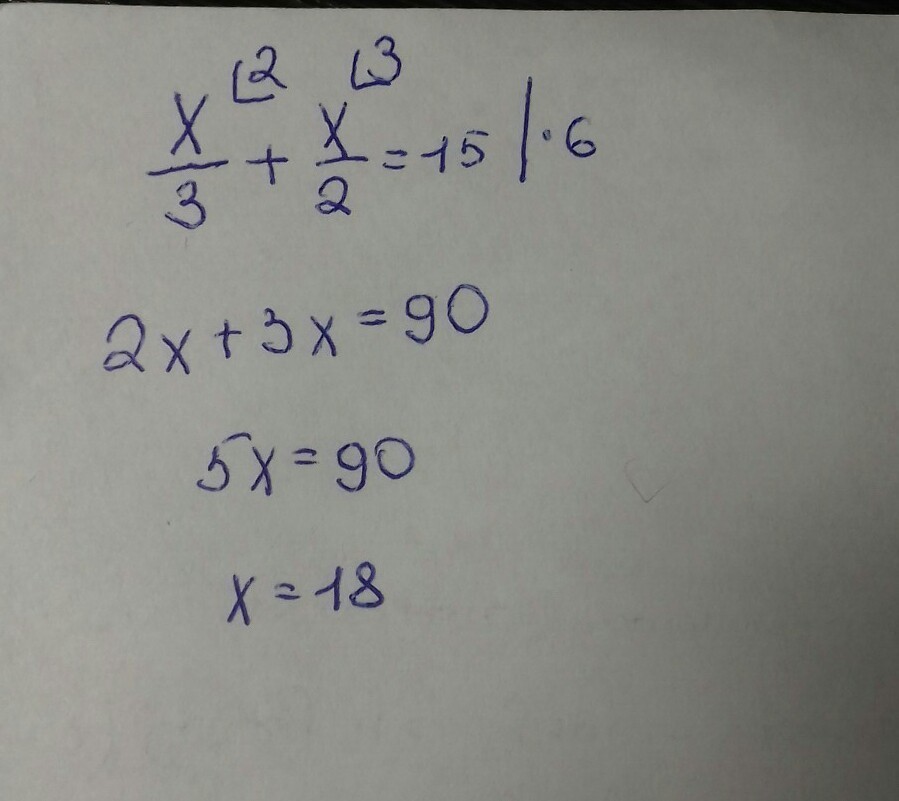 x/3 ⌊2 + x/2 ⌊3 = 15 | · 6
2x + 3x = 90
5x = 90
x = 18